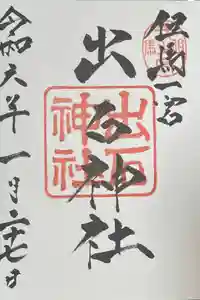 但馬一宮
出石神社
出石神社
令和六年一月二十七日